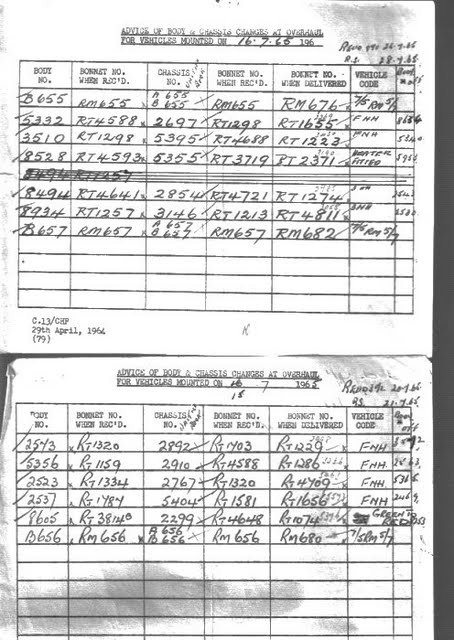 ADVICE OF BODY & CHASSIS CHANGES AT OVERHAUL
FOR VEHICLES MOUNTED ON 16.7.65 196
28.7.65
BODY NO. BONNET NO. WHEN REC'D. CHASSIS NO. BONNET NO. WHEN REC'D. BONNET NO. WHEN DELIVERED VEHICLE CODE
B655 RM655 A 655 B 655 RM655 RM676 7/5 RM 5/7
5332 RT4588 2697 RT1298 RT1655 FNH
3510 RT1298 5395 RT4688 RT1223 FNH
8528 RT4593 5355 RT3719 RT2371 HEATER FITTED
8494 RT1257
8494 RT4641 2854 RT4721 RT1274
8934 RT1257 3146 RT1213 RT4811
B657 RM657 A 657 B 657 RM657 RM682 7/5 RM 5/7
C.13/CHF
29th April, 1964
(79)
ADVICE OF BODY & CHASSIS CHANGES AT OVERHAUL
FOR VEHICLES MOUNTED ON 16 7 1965
15
21.7.65
BODY NO. BONNET NO. WHEN REC'D. CHASSIS NO. BONNET NO. WHEN REC'D. BONNET NO. WHEN DELIVERED VEHICLE CODE
2543 RT1320 2892 RT1403 RT1229 FNH
5356 RT1159 2910 RT4588 RT1286 FNH
2523 RT1334 2767 RT1320 RT4409 FNH
2537 RT1784 5404 RT1581 RT1656 FNH
8605 RT3814 2299 RT4648 RT1074 GREEN TO RED
B656 RM656 A 656 B 656 RM 656 RM680 7/5 RM 5/7